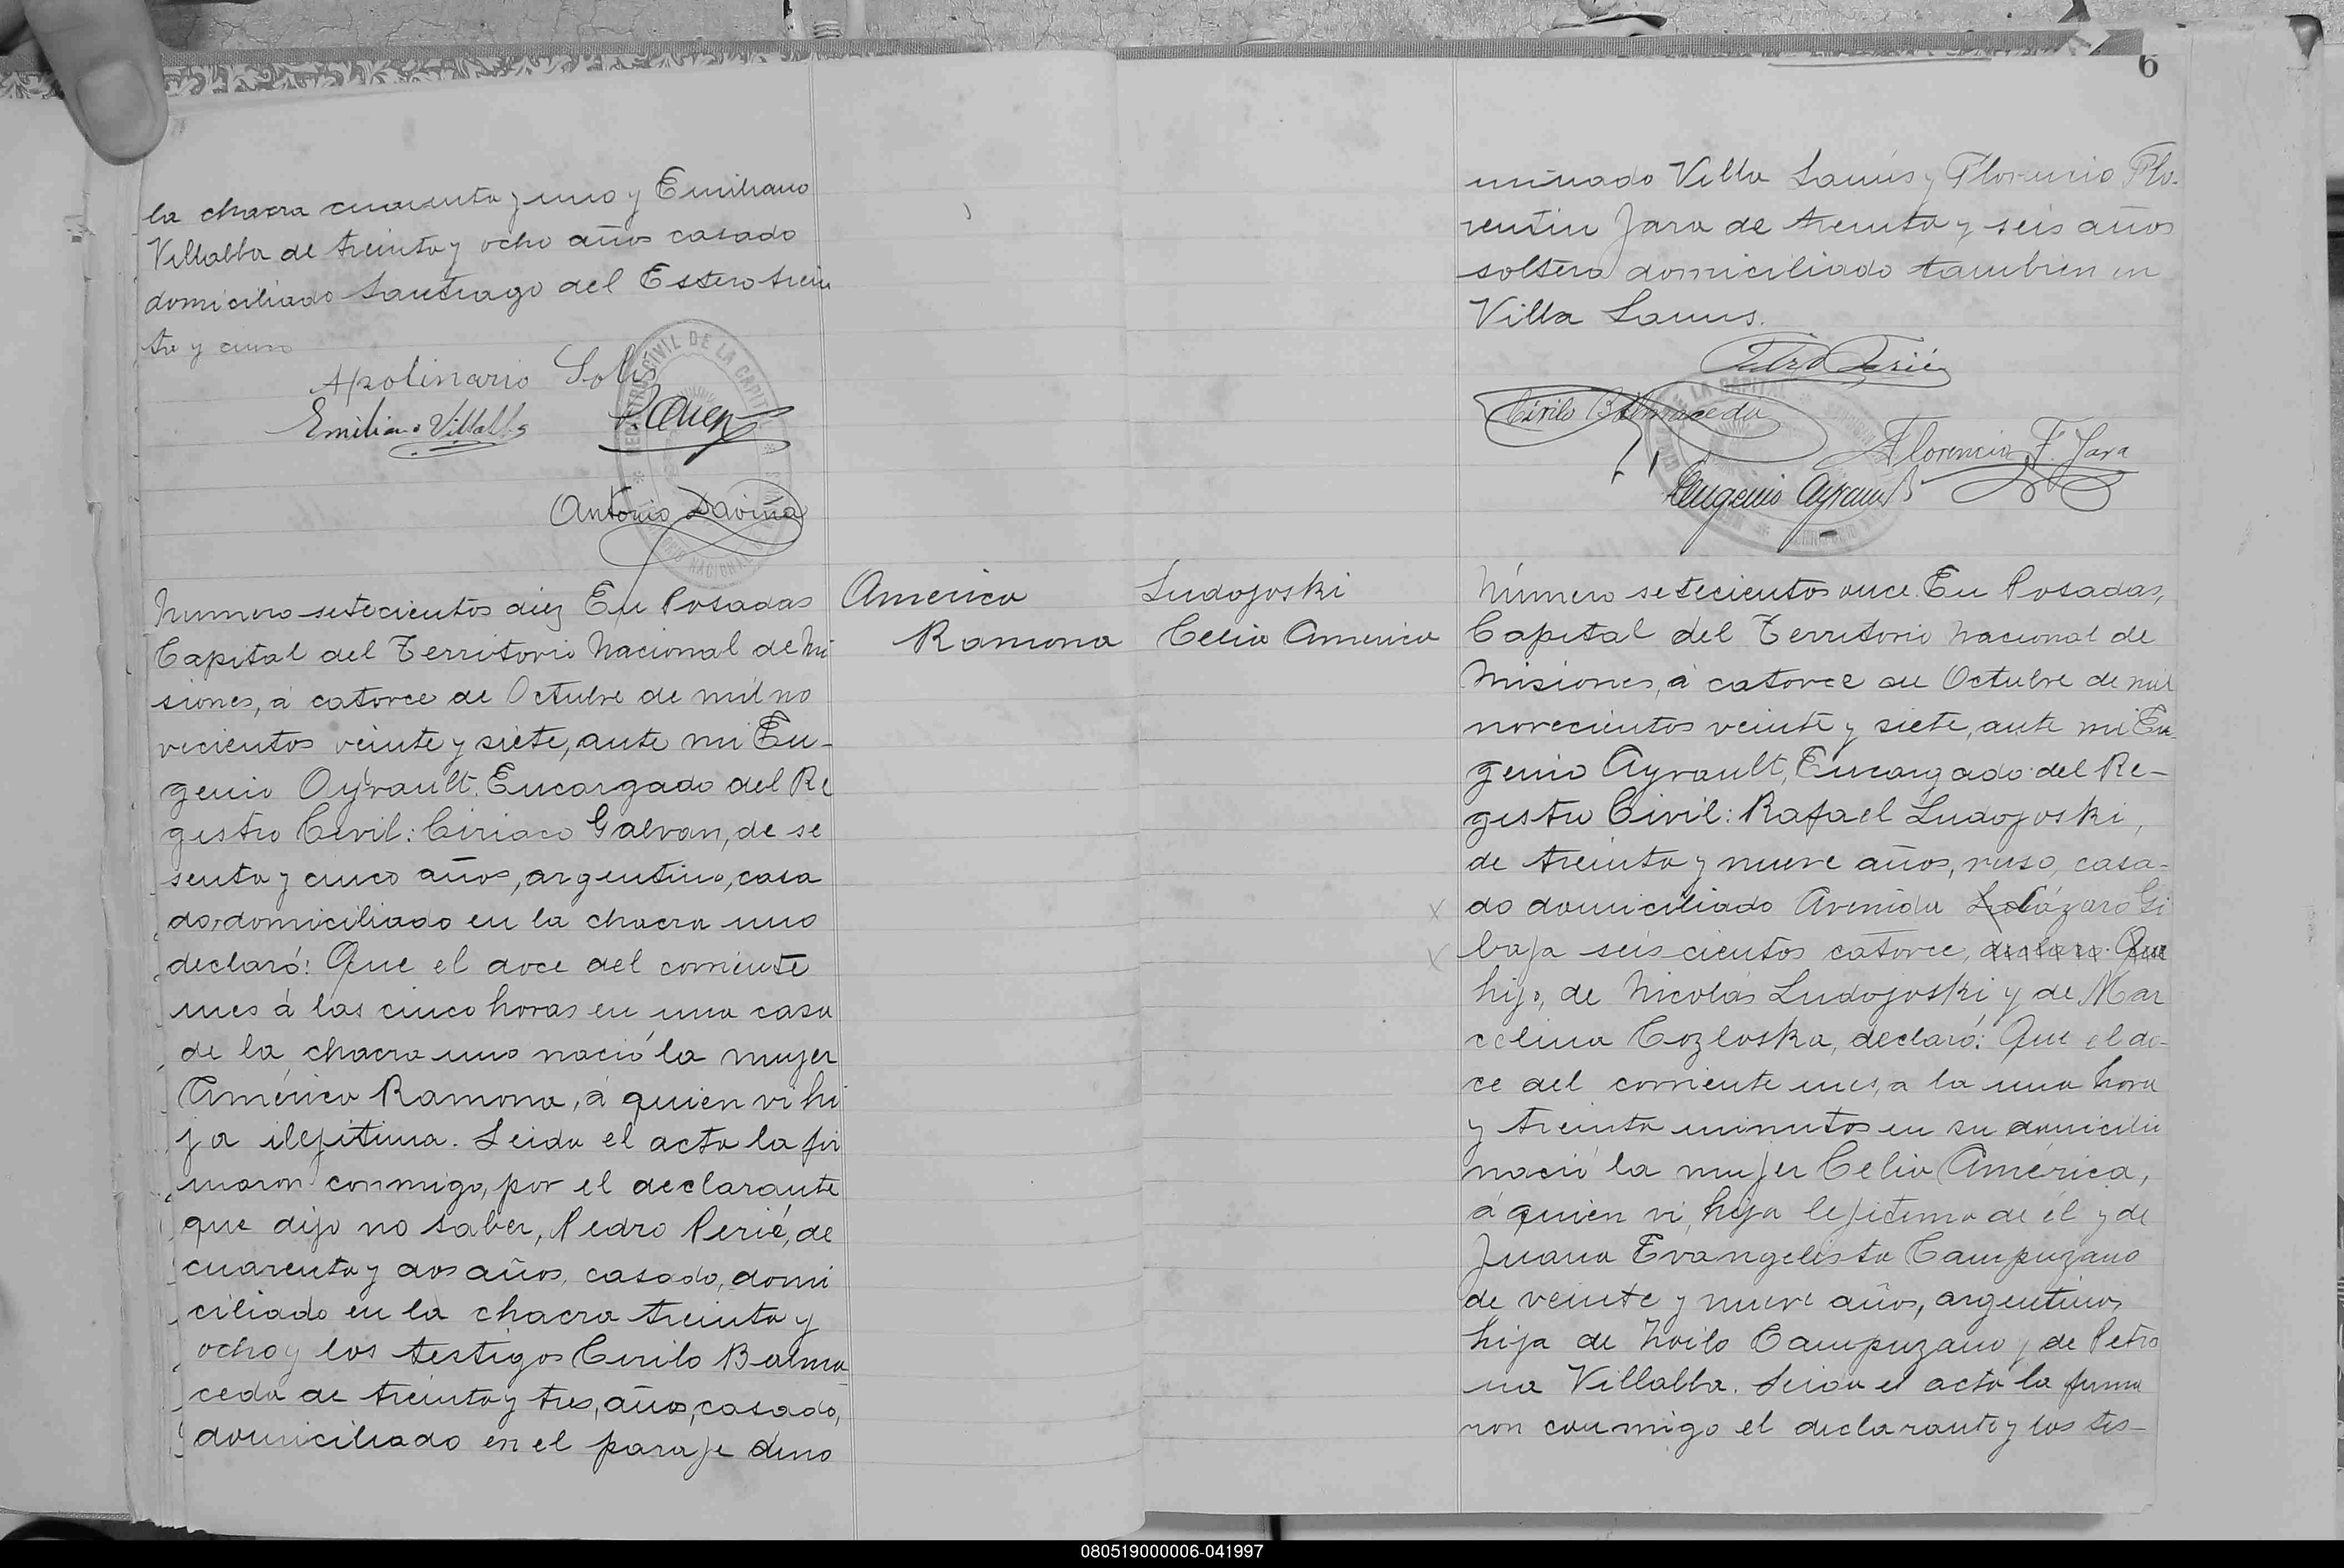 la chacra cuarenta y uno y Emiliano
Villalba de treinta y ocho años casado
domiciliado Santiago del Estero trein
ta y cinco
Apolinario Solis
Emiliano Villalba
Antonio Daviña
REGISTRO CIVIL DE LA CAPITAL
America
Ramona
Numero setecientos diez En Posadas
Capital del Territorio Nacional de Mi
siones, á catorce de Octubre de mil no
vecientos veinte y siete, ante mi Eu-
genio Ayrault. Encargado del Re
gistro Civil: Ciriaco Galvan, de se
senta y cinco años, argentino, casa
do, domiciliado en la chacra uno
declaró: Que el doce del corriente
mes á las cinco horas en una casa
de la chacra uno nació la mujer
América Ramona, á quien vi hi
ja ilejitima. Leida el acta la fir
maron conmigo, por el declarante
que dijo no saber, Pedro Perié, de
cuarenta y dos años, casado, domi
ciliado en la chacra treinta y
ocho y los testigos Cirilo Balma
ceda de treinta y tres, años, casado,
domiciliado en el paraje deno
6
minado Villa Lanús y Florencio Flo-
rentin Jara de treinta y seis años
soltero domiciliado tambien en
Villa Lanus.
Pedro Perié
Cirilo Balmaceda
Florencio F. Jara
Eugenio Ayrault
Ludojoski
Celia America
Número setecientos once. En Posadas,
Capital del Territorio Nacional de
Misiones, á catorce de Octubre de mil
novecientos veinte y siete, ante mi Eu-
genio Ayrault, Encargado del Re-
gistro Civil: Rafael Ludojoski,
de treinta y nueve años, ruso, casa-
do domiciliado Avenida Lázaro Gi
baja seis cientos catorce, declaro. Que
hijo, de Nicolás Ludojoski y de Mar
celina Cozloska, declaró: Que el do-
ce del corriente mes, a la una hora
y treinta minutos en su domicilio
nació la mujer Celia América,
á quien vi, hija lejitima de él y de
Juana Evangelista Campuzano
de veinte y nueve años, argentina,
hija de Zoilo Campuzano y de Petro
na Villalba. Leida el acta la firma
ron conmigo el declarante y los tes-
080519000006-041997